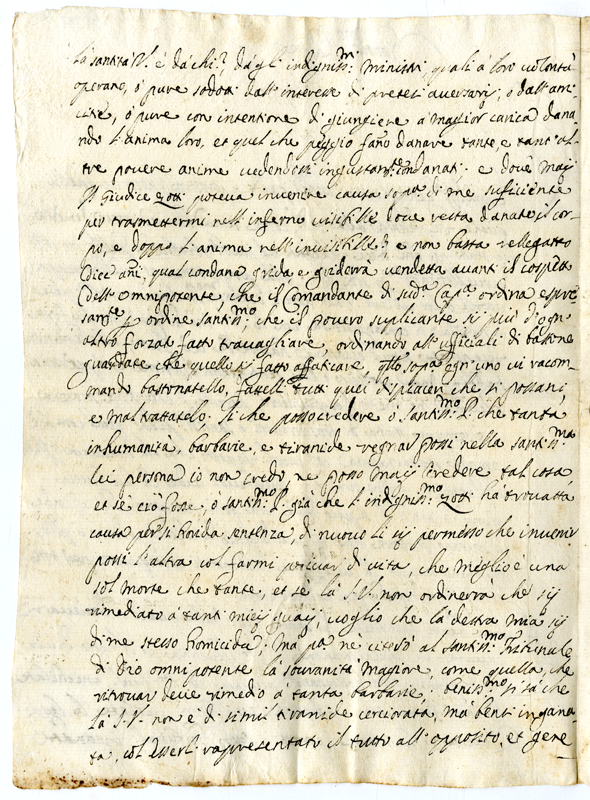 La santità V. è da chi? da gli indigniss.mi Ministri, quali à loro volontà
operano, ò pure sodoti dall'interesse di pretesi aversarij, ò dall'ami
citia, ò pure con intentione di giungiere à magior carica dana
ndo l'anima loro, et quel che peggio fano danare tante, e tant'al
tre povere anime vedendosi ingiustam.te condanati. e dove maij
Il Giudice Zotti poteva invenire causa sop.a di me sufficiente
per trasmettermi nell'inferno visibille dove resta danato il cor
po, e doppo l'anima nell'invisibille? e non basta rellegatto
Dieci ani, qual condana grida e griderrà vendetta avanti il cospetto
Dell'Omnipotente, che il Comandante di sud.a Cap.a ordina espre
sam.te p ordine santiss.mo che il povero suplicante sij più d'ogn
altro forzato fatto travagliare, ordinando all'ufficiali di bastone
guardate che quello sij fatto affaticare, q.llo sop.a ogn'uno vi racom
mando bastonatello, fatelli tutti quei displaceri che si possani,
e maltrattatelo. Si che posso credere ò Santiss.mo P. che tanta
inhumanità, barbarie, e tiranide regnar possi nella santiss.ma
lei persona io non credo, ne posso maij credere tal cosa,
et se ciò fosse, ò santiss.mo P. già che l'indigniss.mo Zotti hà trovatta
causa per si horida sentenza, di nuovo li sij permesso che invenir
possi l'altra col farmi privar di vita, che miglio è una
sol morte che tante, et sè la S.V. non ordinerrà che sij
rimediato à tanti mieij guaij, voglio che la destra mia sij
di me stesso homicida; Mà p.a ne citerò al santiss.mo Tribunale
di Dio omnipotente la sovranità magiore, come quella, che
ritrovar deve rimedio à tanta barbarie; beniss.mo si sà che
la S.V. non è di simil tiranide cerciorata, mà bensi ingana
ta, col haverli rapresentato il tutto all'opposito, et gene